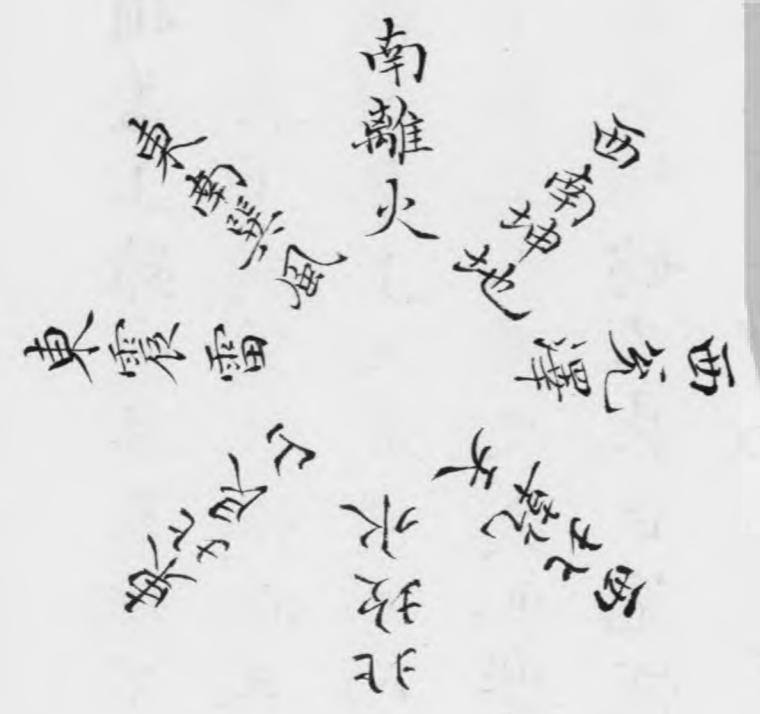 南離火
西南坤地
西兌澤
西北乾天
北坎水
東北艮山
東震雷
東南巽風